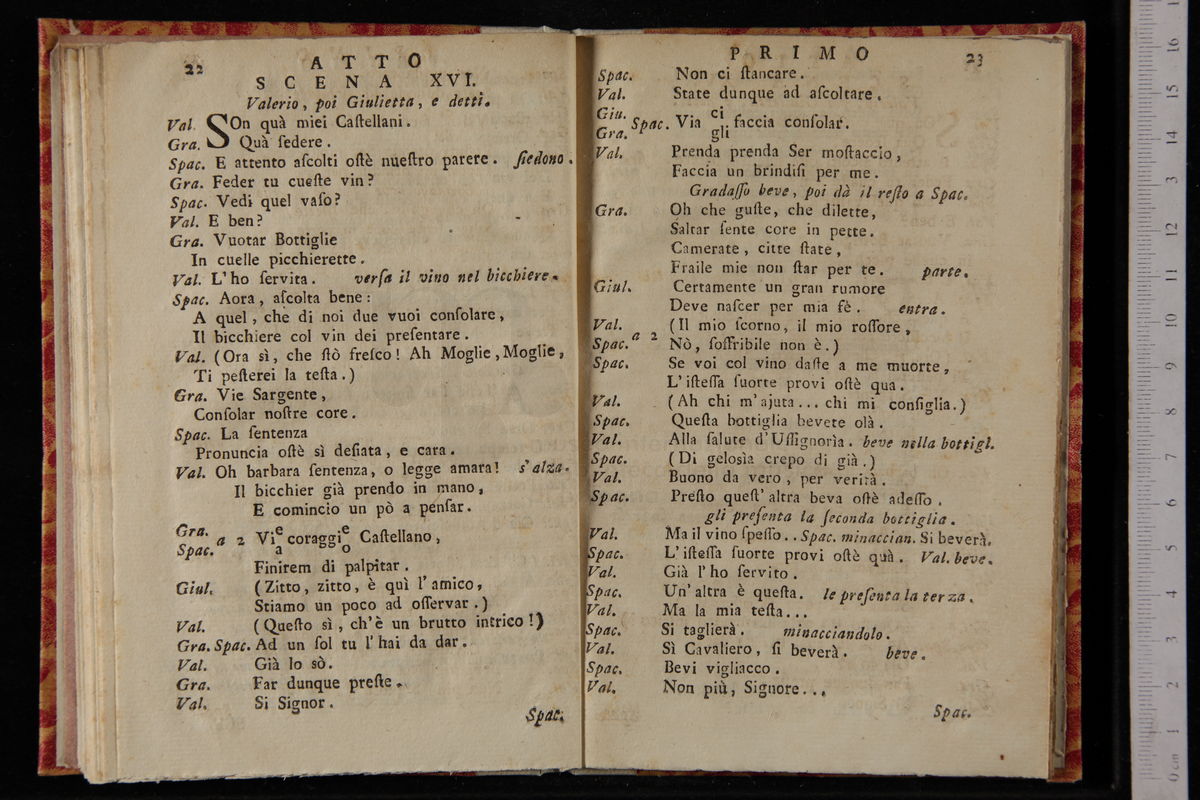 22 ATTO
SCENA XVI.
Valerio, poi Giulietta, e detti.
Val. SOn quà miei Caſtellani.
Gra. Quà ſedere.
Spac. E attento aſcolti oſtè nueſtro parere. ſiedono.
Gra. Feder tu cueſte vin?
Spac. Vedi quel vaſo?
Val. E ben?
Gra. Vuotar Bottiglie
In cuelle picchierette.
Val. L'ho ſervita. verſa il vino nel bicchiere.
Spac. Aora, aſcolta bene:
A quel, che di noi due vuoi conſolare,
Il bicchiere col vin dei preſentare.
Val. (Ora sì, che ſtò freſco! Ah Moglie, Moglie,
Ti peſterei la teſta.)
Gra. Vie Sargente,
Conſolar noſtre core.
Spac. La ſentenza
Pronuncia oſtè sì deſiata, e cara.
Val. Oh barbara ſentenza, o legge amara! s'alza.
Il bicchier già prendo in mano,
E comincio un pò a penſar.
Gra. e e
a 2 Vi coraggi Caſtellano,
Spac. a o
Finirem di palpitar.
Giul. (Zitto, zitto, è quì l'amico,
Stiamo un poco ad oſſervar.)
Val. (Queſto sì, ch'è un brutto intrico!)
Gra. Spac. Ad un ſol tu l'hai da dar.
Val. Già lo sò.
Gra. Far dunque preſte.
Val. Si Signor.
Spac.
PRIMO 23
Spac. Non ci ſtancare.
Val. State dunque ad aſcoltare.
Giu. ci
Spac. Via faccia conſolar.
Gra. gli
Val. Prenda prenda Ser moſtaccio,
Faccia un brindiſi per me.
Gradaſſo beve, poi dà il reſto a Spac.
Gra. Oh che guſte, che dilette,
Saltar ſente core in pette.
Camerate, citte ſtate,
Fraile mie non ſtar per te. parte.
Giul. Certamente un gran rumore
Deve naſcer per mia fè. entra.
Val. (Il mio ſcorno, il mio roſſore,
a 2
Spac. Nò, ſoffribile non è.)
Spac. Se voi col vino daſte a me muorte,
L'iſteſſa ſuorte provi oſtè qua.
Val. (Ah chi m'ajuta... chi mi conſiglia.)
Spac. Queſta bottiglia bevete olà.
Val. Alla ſalute d'Uſſignorìa. beve nella bottigl.
Spac. (Di geloſìa crepo di già.)
Val. Buono da vero, per verità.
Spac. Preſto queſt'altra beva oſtè adeſſo.
gli preſenta la ſeconda bottiglia.
Val. Ma il vino ſpeſſo.. Spac. minaccian. Si beverà.
Spac. L'iſteſſa ſuorte provi oſtè quà. Val. beve.
Val. Già l'ho ſervito.
Spac. Un'altra è queſta. le preſenta la terza.
Val. Ma la mia teſta...
Spac. Si taglierà. minacciandolo.
Val. Sì Cavaliero, ſi beverà. beve.
Spac. Bevi vigliacco.
Val. Non più, Signore...
Spac.